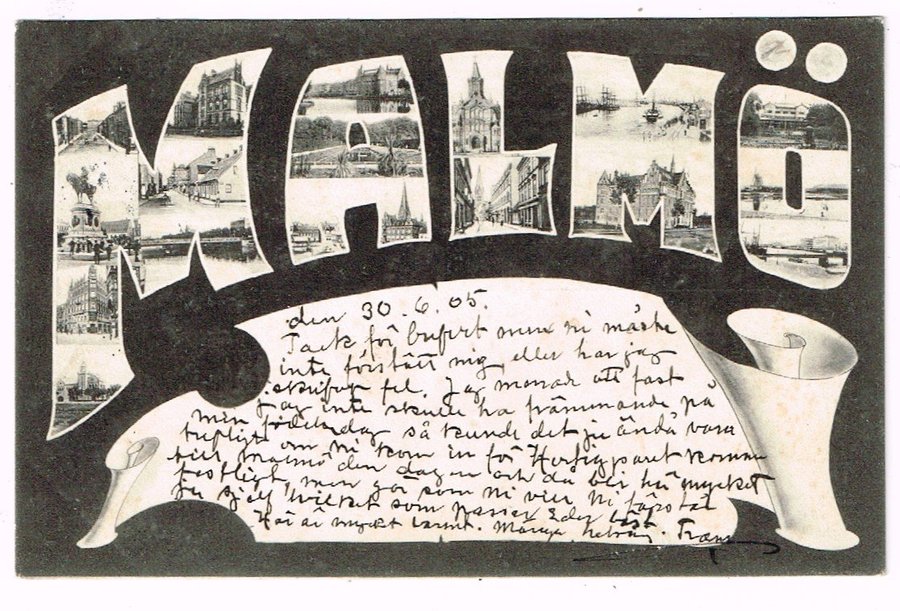 MALMÖ
den 30.6.05.
Tack för brefvet men ni måste
inte förstått mig, eller har jag
skrifvit fel. Jag menade att fast
jag inte skulle ha främmande på
min födelsedag så kunde det ju ändå vara
trefligt om ni kom in för Hertigparet komma
till Malmö den dagen och då blir här mycket
festligt, men gör som ni vill ni förstår
ju sjelf hvilket som passar Eder bäst.
Här är mycket varmt. Många helsn.